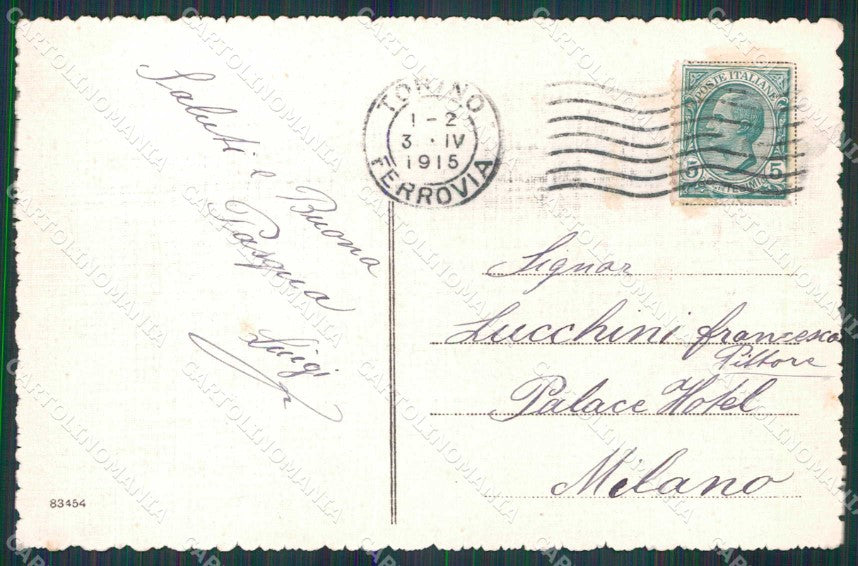 Saluti e Buona
Pasqua
Luigi
83454
TORINO
1-2
3 . IV
1915
FERROVIA
POSTE ITALIANE
5 5
Signor
Lucchini francesco
Pittore
Palace Hotel
Milano
CARTOLINOMANIA